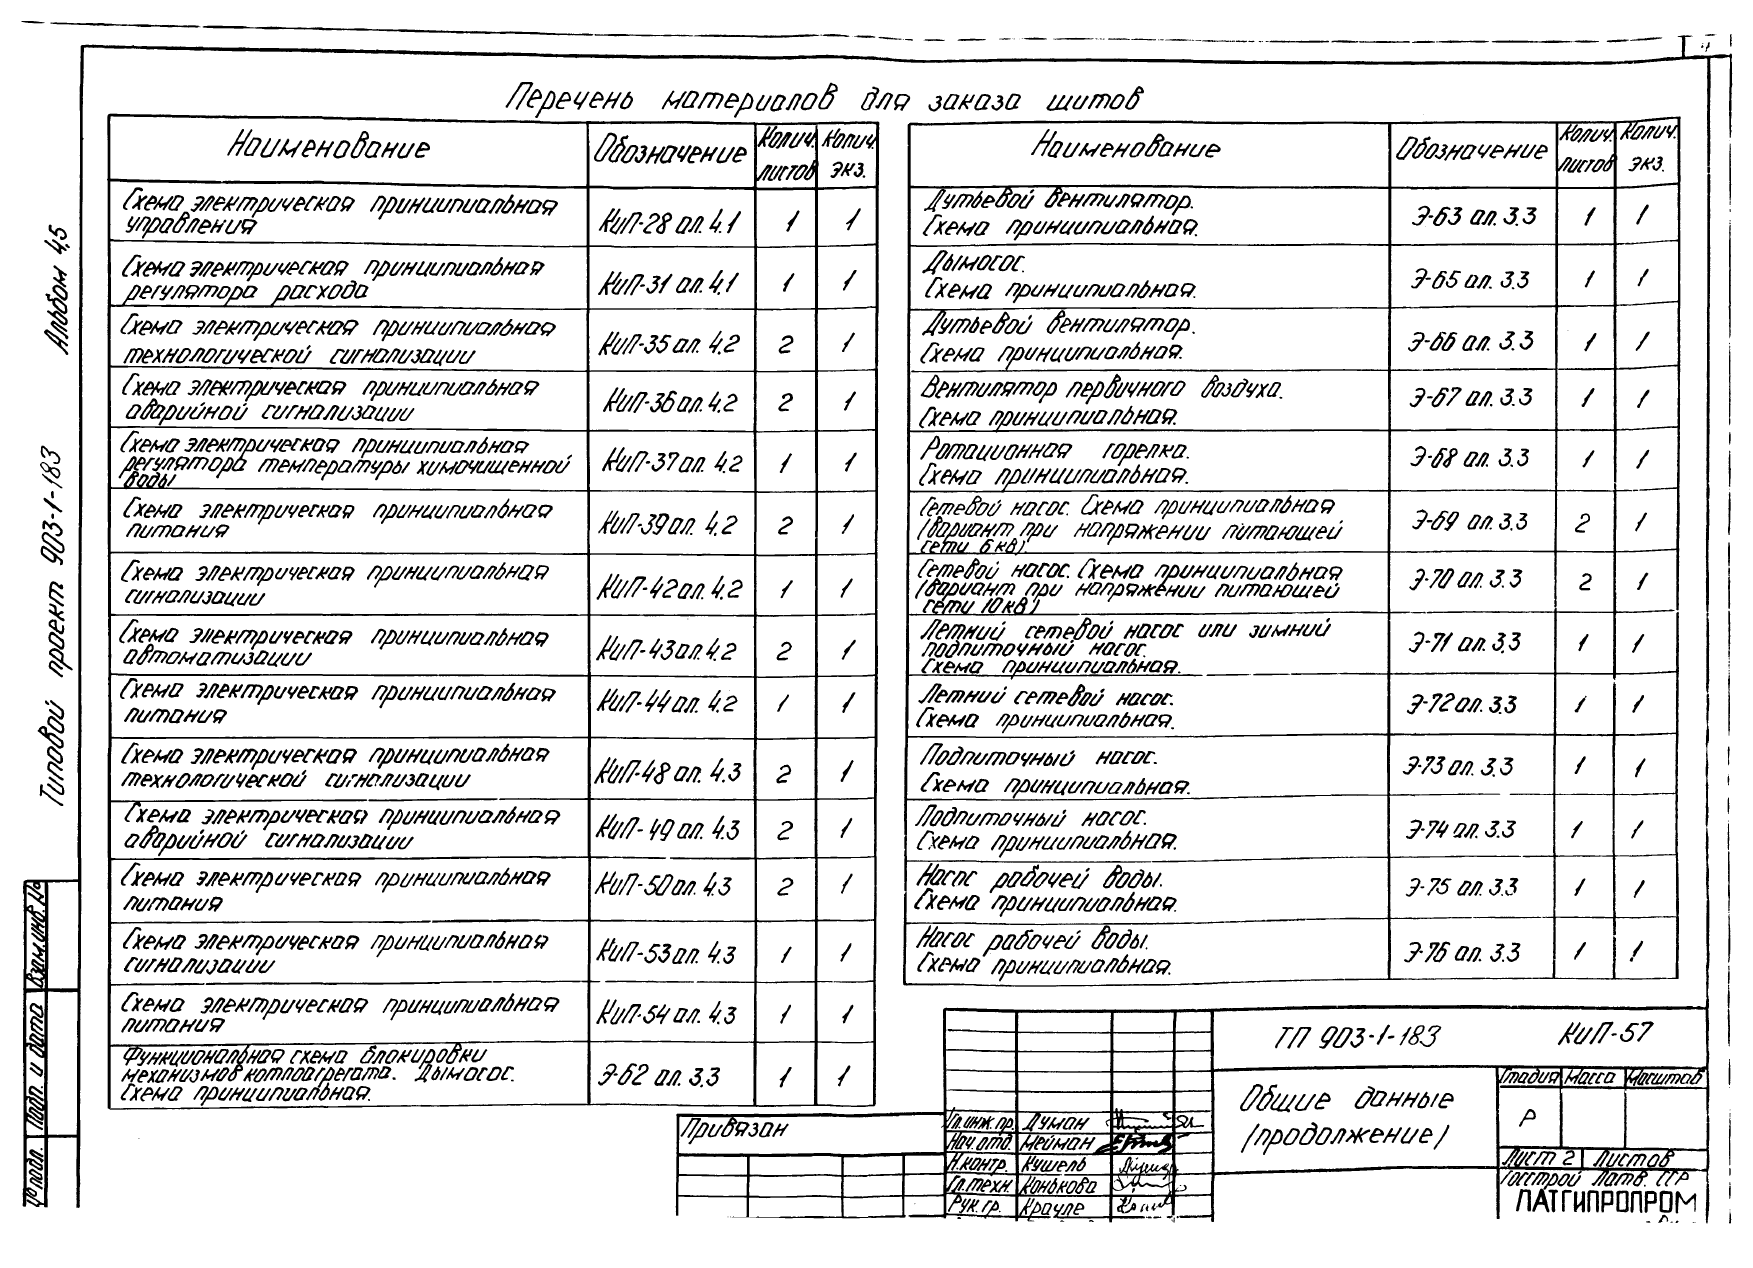 4
Перечень материалов для заказа щитов
Наименование Обозначение Колич. листов Колич. экз.
Схема электрическая принципиальная
управления КиП-28 ал. 4.1 1 1
Схема электрическая принципиальная
регулятора расхода КиП-31 ал. 4.1 1 1
Схема электрическая принципиальная
технологической сигнализации КиП-35 ал. 4.2 2 1
Схема электрическая принципиальная
аварийной сигнализации КиП-36 ал. 4.2 2 1
Схема электрическая принципиальная
регулятора температуры химочищенной
воды КиП-37 ал. 4.2 1 1
Схема электрическая принципиальная
питания КиП-39 ал. 4.2 2 1
Схема электрическая принципиальная
сигнализации КиП-42 ал. 4.2 1 1
Схема электрическая принципиальная
автоматизации КиП-43 ал. 4.2 2 1
Схема электрическая принципиальная
питания КиП-44 ал. 4.2 1 1
Схема электрическая принципиальная
технологической сигнализации КиП-48 ал. 4.3 2 1
Схема электрическая принципиальная
аварийной сигнализации КиП-49 ал. 4.3 2 1
Схема электрическая принципиальная
питания КиП-50 ал. 4.3 2 1
Схема электрическая принципиальная
сигнализации КиП-53 ал. 4.3 1 1
Схема электрическая принципиальная
питания КиП-54 ал. 4.3 1 1
Функциональная схема блокировки
механизмов котлоагрегата. Дымосос.
Схема принципиальная. Э-62 ал. 3.3 1 1
Наименование Обозначение Колич. листов Колич. экз.
Дутьевой вентилятор.
Схема принципиальная. Э-63 ал. 3.3 1 1
Дымосос.
Схема принципиальная. Э-65 ал. 3.3 1 1
Дутьевой вентилятор.
Схема принципиальная. Э-66 ал. 3.3 1 1
Вентилятор первичного воздуха.
Схема принципиальная. Э-67 ал. 3.3 1 1
Ротационная горелка.
Схема принципиальная. Э-68 ал. 3.3 1 1
Сетевой насос. Схема принципиальная
(вариант при напряжении питающей
сети 6кв). Э-69 ал. 3.3 2 1
Сетевой насос. Схема принципиальная
(вариант при напряжении питающей
сети 10кв) Э-70 ал. 3.3 2 1
Летний сетевой насос или зимний
подпиточный насос.
Схема принципиальная. Э-71 ал. 3.3 1 1
Летний сетевой насос.
Схема принципиальная. Э-72 ал. 3.3 1 1
Подпиточный насос.
Схема принципиальная. Э-73 ал. 3.3 1 1
Подпиточный насос.
Схема принципиальная. Э-74 ал. 3.3 1 1
Насос рабочей воды.
Схема принципиальная. Э-75 ал. 3.3 1 1
Насос рабочей воды.
Схема принципиальная. Э-76 ал. 3.3 1 1
Типовой проект 903-1-183 Альбом 4.5
Взам.инв.№
Подп. и дата
№ подл.
Привязан
Гл.инж.пр. Думан
Нач.отд. Мейман
Н.контр. Кушель
Гл.техн. Конькова
Рук.гр. Крауле
ТП 903-1-183 КиП-57
Общие данные
(продолжение)
Стадия Масса Масштаб
Р
Лист 2 Листов
Госстрой Латв. ССР
ЛАТГИПРОПРОМ